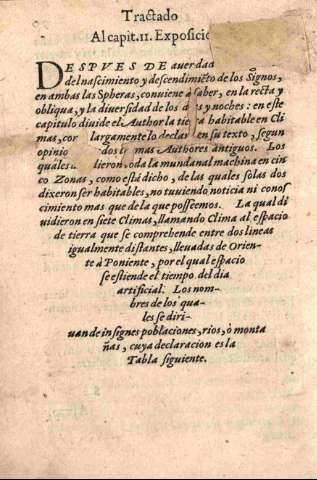 Tractado
Al capit. 11. Exposicio
DESPVES DE auer dad
del nascimiento y descendimiẽto de los Signos,
en ambas las Spheras, conuiene à saber, en la recta y
obliqua, y la diuersidad de los dias y noches: en este
capitulo diuide el Author la tierra habitable en Cli
mas, co largamente lo declar en su texto, segun
opinio dos mas Authores antiguos. Los
quales dieron oda la mundanal machina en cin
co Zonas, como está dicho, de las quales solas dos
dixeron ser habitables, no tuuiendo noticia ni conos
cimiento mas que de la que posseemos. La qual di
uidieron en siete Climas, llamando Clima al espacio
de tierra que se comprehende entre dos lineas
igualmente distantes, lleuadas de Orien-
te à Poniente, por el qual espacio
se estiende el tiempo del dia
artificial. Los nom-
bres de los qua-
les se diri-
uan de insignes poblaciones, rios, ò monta
ñas, cuya declaracion es la
Tabla siguiente.